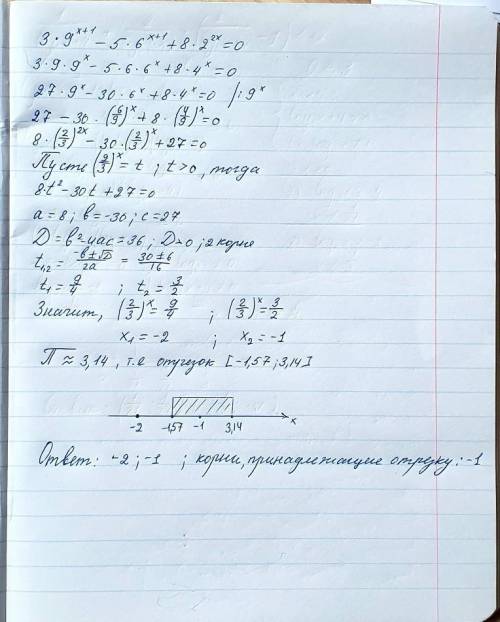 3 · 9^{x+1} − 5 · 6^{x+1} + 8 · 2^{2x} = 0
3 · 9 · 9^x − 5 · 6 · 6^x + 8 · 4^x = 0
27 · 9^x − 30 · 6^x + 8 · 4^x = 0 /: 9^x
27 − 30 · (6/9)^x + 8 · (4/9)^x = 0
8 · (2/3)^{2x} − 30 · (2/3)^x + 27 = 0
Пусть (2/3)^x = t ; t > 0, тогда
8t² − 30t + 27 = 0
a = 8 ; b = −30 ; c = 27
D = b² − 4ac = 36 ; D > 0 ; 2 корня
t_{1,2} = (−b ± √D)/2a = (30 ± 6)/16
t_1 = 9/4 ; t_2 = 3/2
Значит, (2/3)^x = 9/4 ; (2/3)^x = 3/2
x_1 = −2 ; x_2 = −1
П ≈ 3,14 , т.е отрезок [−1,57 ; 3,14]
−2 −1,57 −1 3,14 x
Ответ: −2 ; −1 ; корни, принадлежащие отрезку: −1